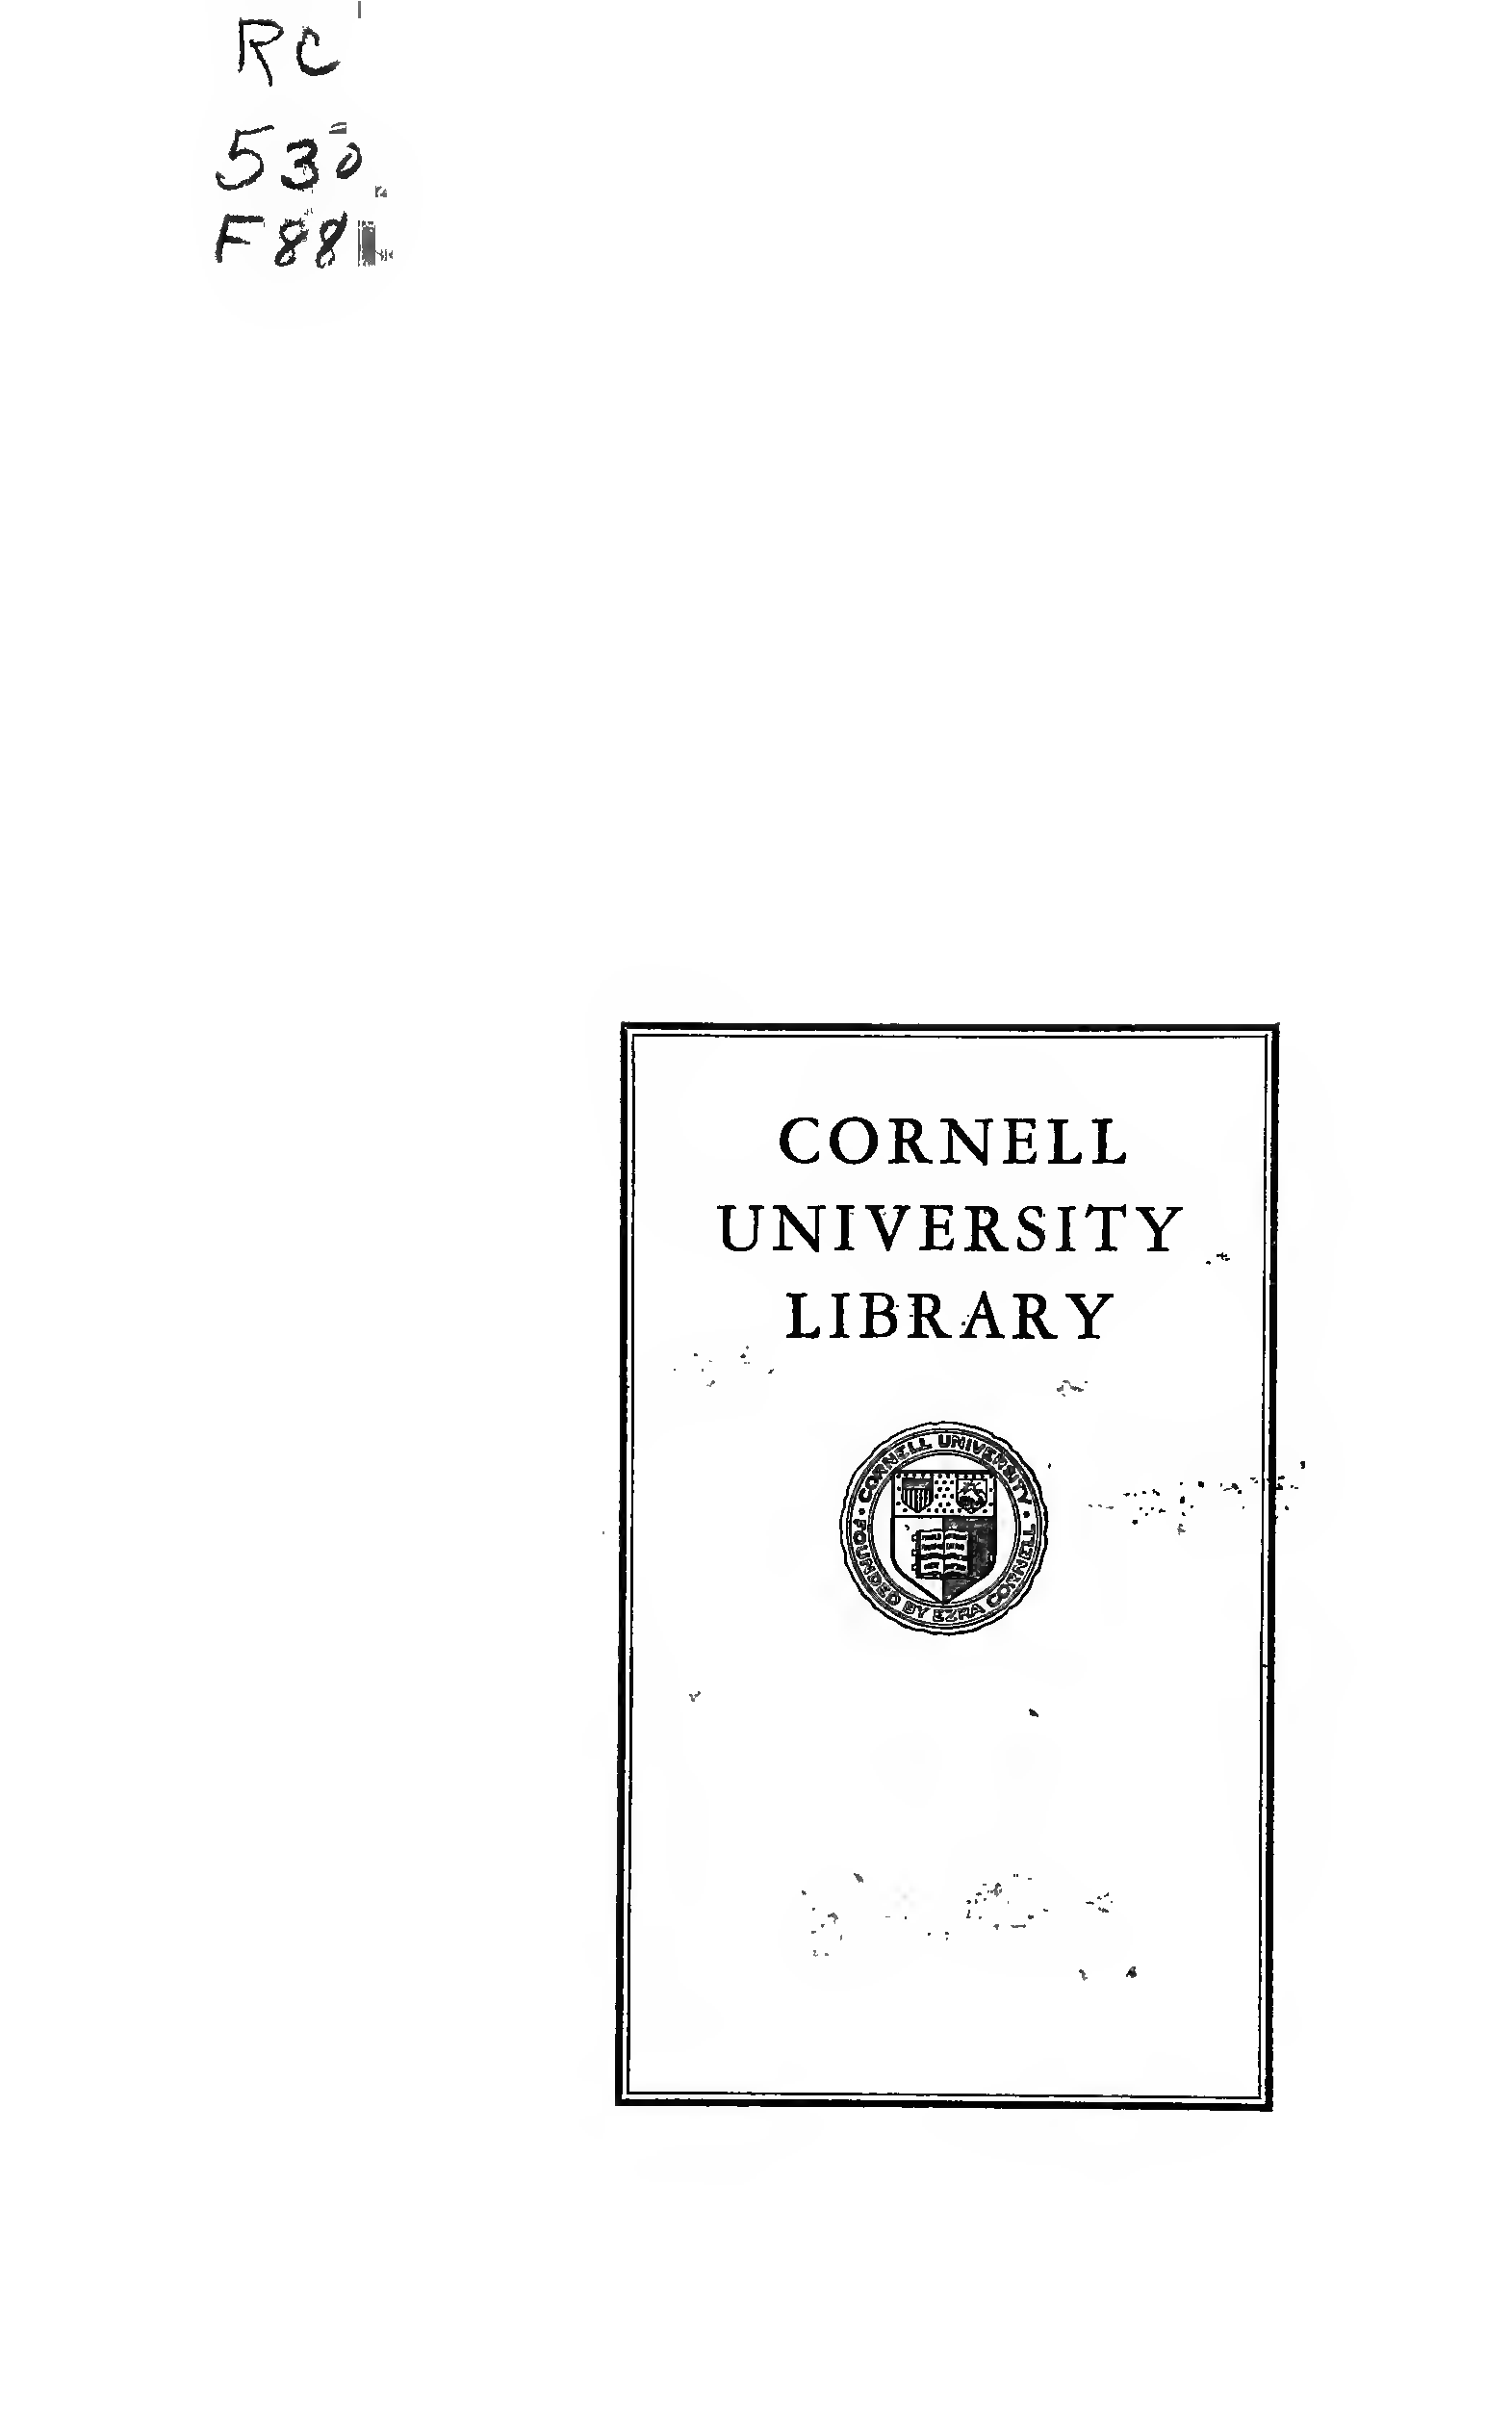 RC
530
F88
CORNELL
UNIVERSITY
LIBRARY
CORNELL UNIVERSITY
FOUNDED BY EZRA CORNELL